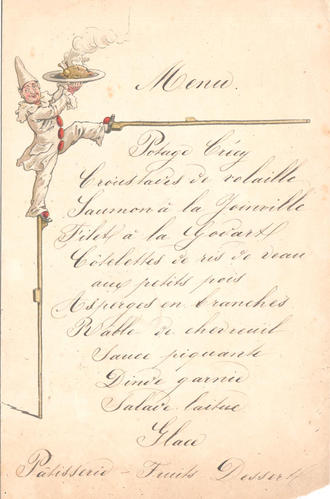 Menu.
Potage Crécy
Croustades de volaille
Saumon à la Joinville
Filet à la Godart
Côtelettes de ris de veau
aux petits pois
Asperges en branches
Rable de chevreuil
Sauce piquante
Dinde garnie
Salade laitue
Glace
Pâtisserie - Fruits Dessert